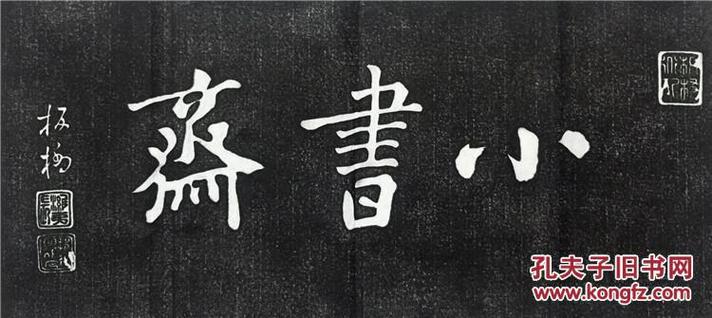 小書齋
板橋
孔夫子旧书网
www.kongfz.com